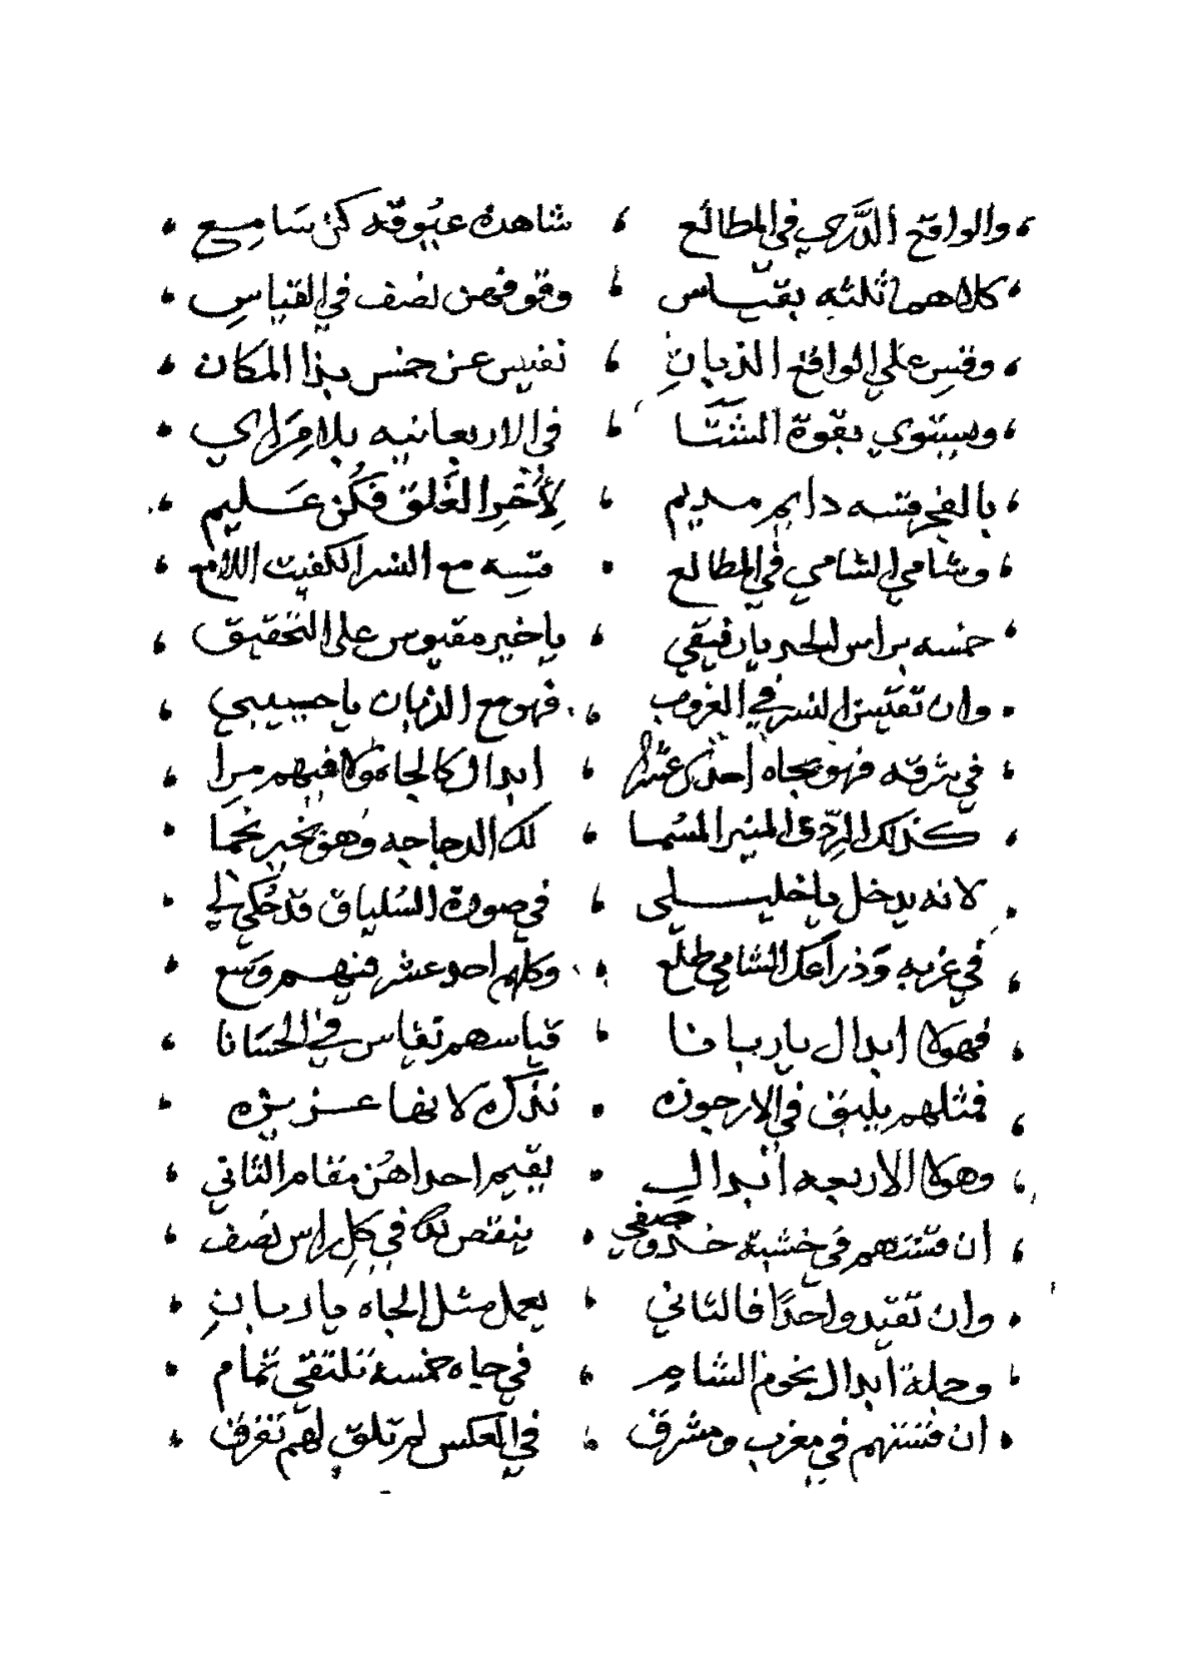 والواقع الدَّري في المطالع ، شاهده عيُّوقه كن سَامِع
كلاهما ثلثه بقيَاس ، وقوفهن نصف في القياسِ
وقِس علي الواقع الذبانِ ، نفيس عن خمس بذا المكان
ويستوي بقوة الشتَا ، في الاربعانيه بلا مِرَاي
بالفجر قسه دايم مديم ، لِأُخَرِ الغَلق فكُن عَليم
وشامي الشامي في المطالع ، قسه مع النسر الكفيت اللامع
خمسه براس الحد يا رفيقي ، يا خير مقيوس على التحقيق
وان تقيس النسر في الغروب ، فهو مع الذبان يا حبيبي
في شرقه فهو بجاه احد عشرا ، ابدال كالجاه ولا فيهم مِرا
كذلك الرّدف المنير المسُما ، لك الدجاجه وهو بخير نجما
لانه يدخل يا خليلي ، في صورة السُلياق قد حُكي لي
في غربه وَذراعك الشامي طلّع ، وكلهم احد عشر فيهم وسَع
فهولا ابدال يا ربانا ، قياسهم تقاس في الحسَانا
فمثلهم يليق في الارجوزه ، نذكره لانها عزيزه
وهولا الاربعه ابدالِ ، يقيم احداهُن مقام الثاني
ان قستهم في خشبة خذ وصفي ، ينقص لك في كل راس نصف
وان تقيد واحدًا فالثاني ، يعمل مثل الجاه يا ربانِ
وجملة ابدال نجوم الشام ، في جاه خمسة تلتقي تمام
ان قستهم في مغرب ومشرق ، في العكس لم تلق لهم تفرق